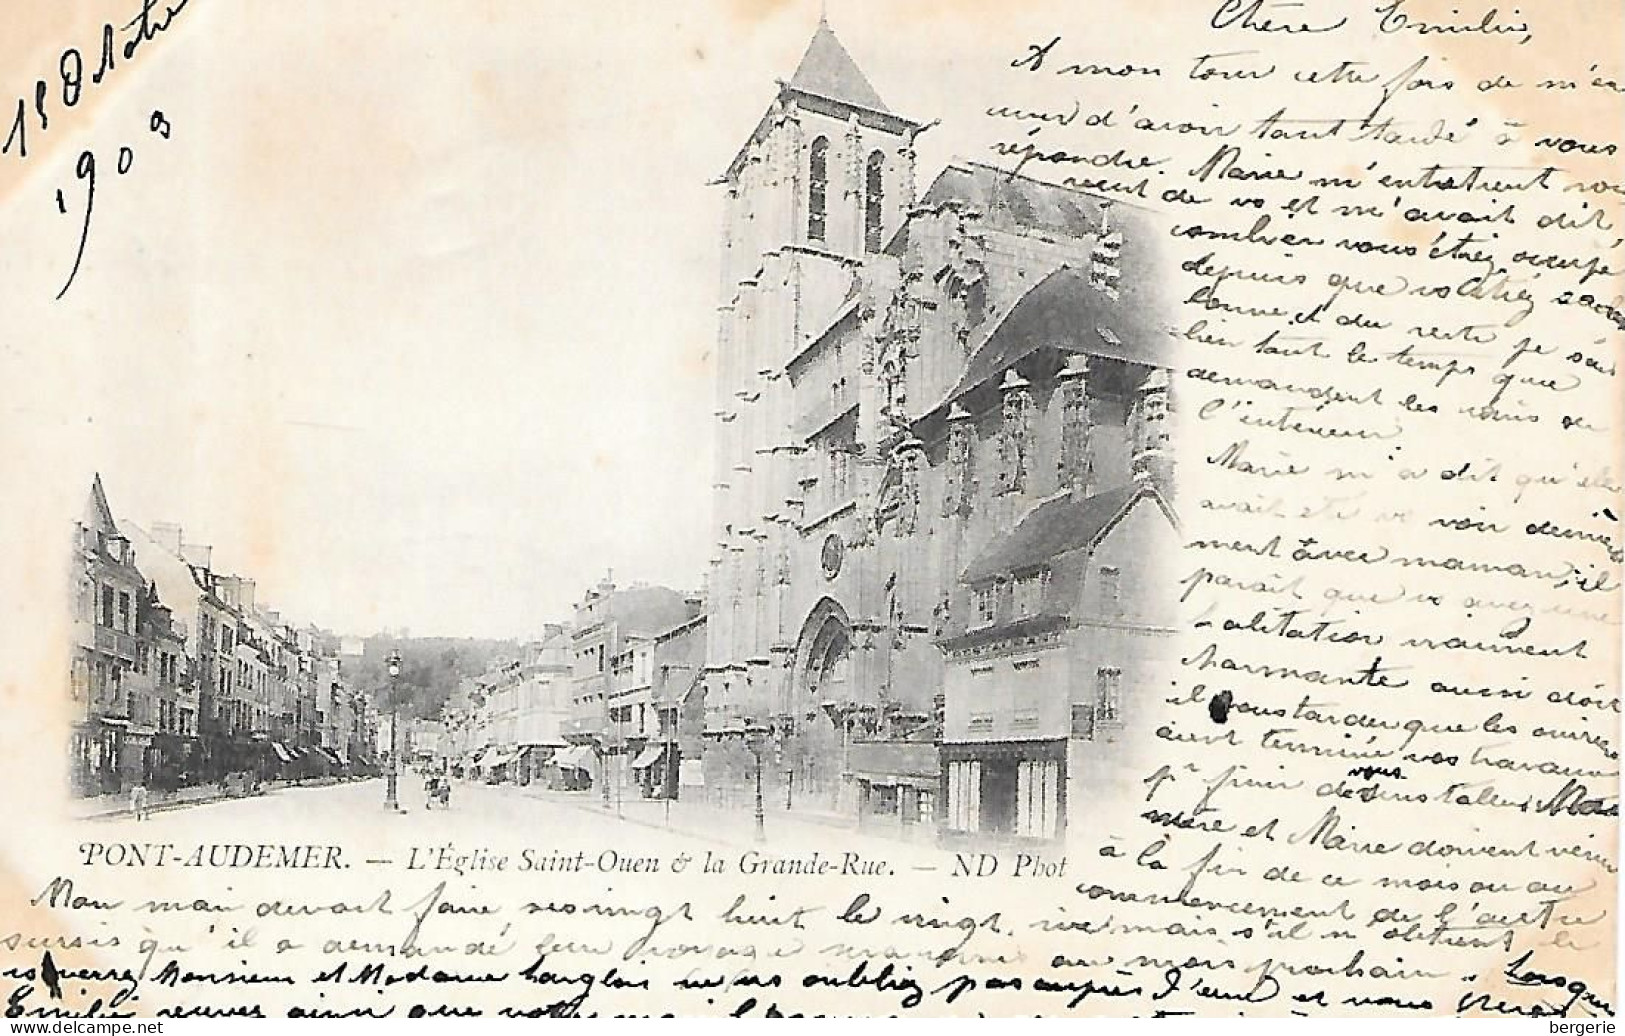 15 Octobre
1903
Chère Emilie,
A mon tour cette fois de m'ex
cuser d'avoir tant tardé à vous
répondre. Marie m'entretient sou
vent de vs et m'avait dit,
combien vous étiez occupé
depuis que vs étiez sans
bonne et du reste je sais
bien tant le temps que
demandent les soins de
l'intérieur.
Marie m'a dit qu'elle
avait été vs voir dernière
ment avec maman, il
parait que vs avez une
habitation vraiment
charmante aussi doit
il vous tarder que les ouvriers
aient terminé vos travaux
pr finir de vous installer. Ma
mère et Marie doivent venir
à la fin de ce mois ou au
commencement de l'autre
PONT-AUDEMER. — L'Église Saint-Ouen & la Grande-Rue. — ND Phot
Mon mari devait faire ses vingt huit le vingt, mais s'il n'obtient le
sursis qu'il a demandé leur voyage au mois prochain. Lorsque
vs verrez Monsieur et Madame Langlois ne ns oubliez pas auprès d'eux et vous chère
Emilie recevez ainsi que votre mari
bergerie